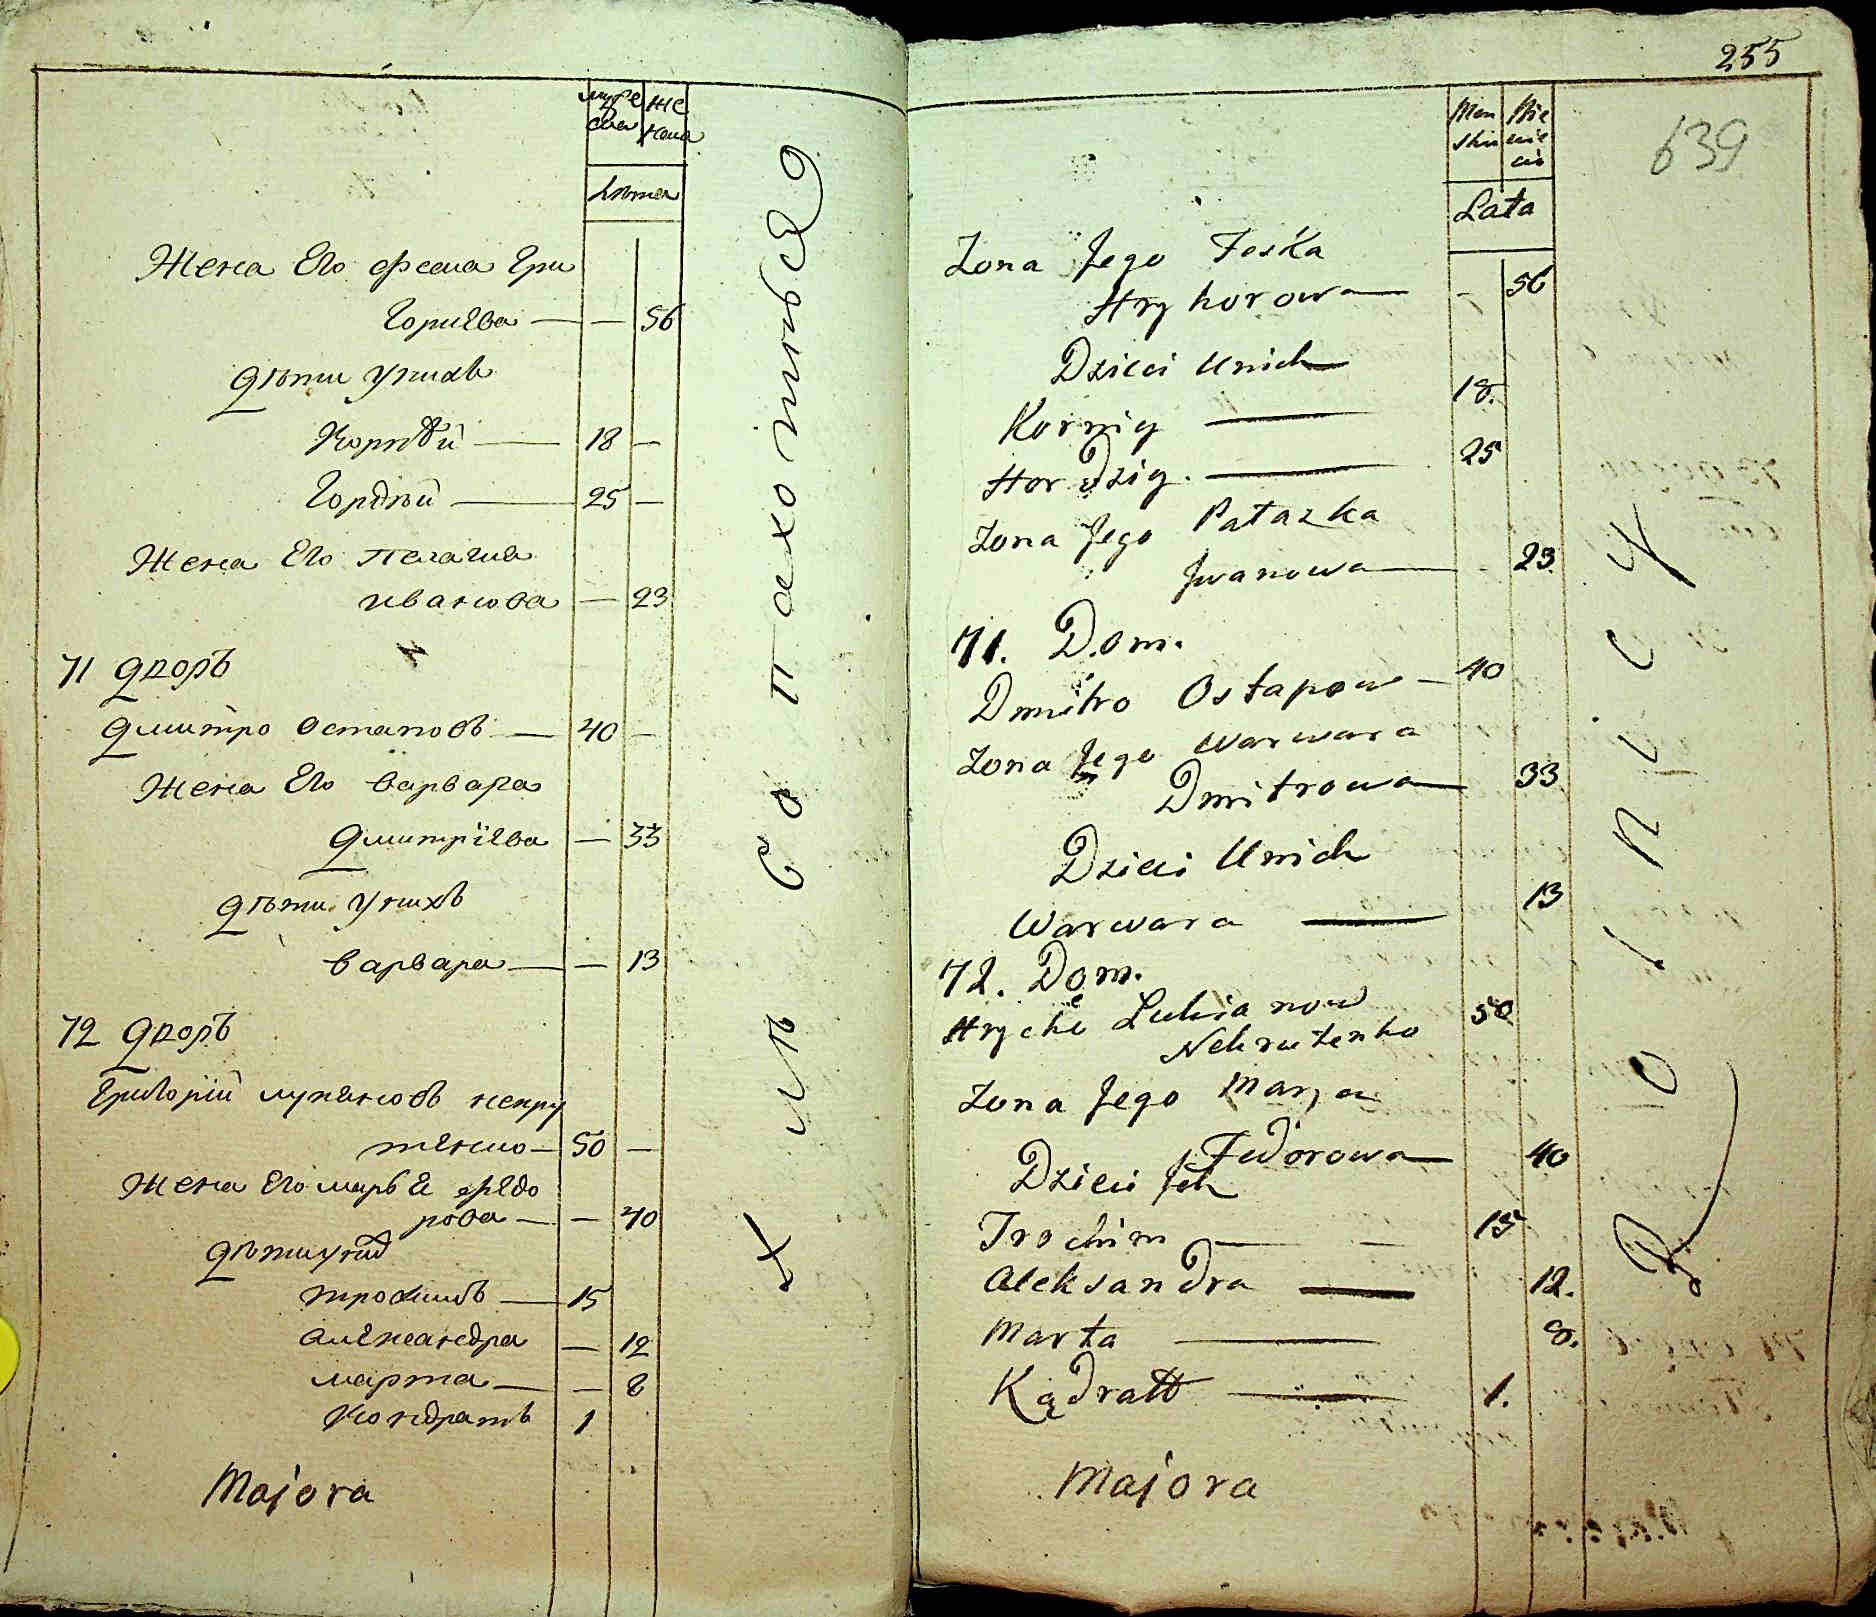 муже же
ска нска
лѣта
Жена Его феска Гри
горьева — — 56
Дѣти у нихъ
Корнѣй — 18 —
Гордѣй — 25 —
Жена Его Пелагия
иванова — 23
71 Дворъ
Дмитро Остаповъ — 40 —
Жена Его варвара
Дмитріева — 33
Дѣти у нихъ
варвара — — 13
72 Дворъ
Григорій лукяновъ некру
тенко — 50 —
Жена Его марья федо
рова — — 40
Дѣти у них
трохимъ — 15
александра — 12
марта — — 8
кондратъ 1
Majora
хлѣбопахотныя
255
639
Men Bie
skie
Lata
Zona Jego Feska
Hryhorowa — - 56
Dzieci Unich
Korniy — 18.
Hordziy. — 25
Zona Jego Patazka
Jwanowa — 23
71. Dom.
Dmitro Ostapow — 40
Zona Jego Warwara
Dmitrowa 33
Dzieci Unich
Warwara — 13
72. Dom.
Hryche Lukianow 50
Nekrutenko
Zona Jego Marja
Fedorowa — 40
Dzieci Jch
Trochim — — 15
Aleksandra — 12.
Marta — 8.
Kądratt — 1.
Majora
Rolnicy